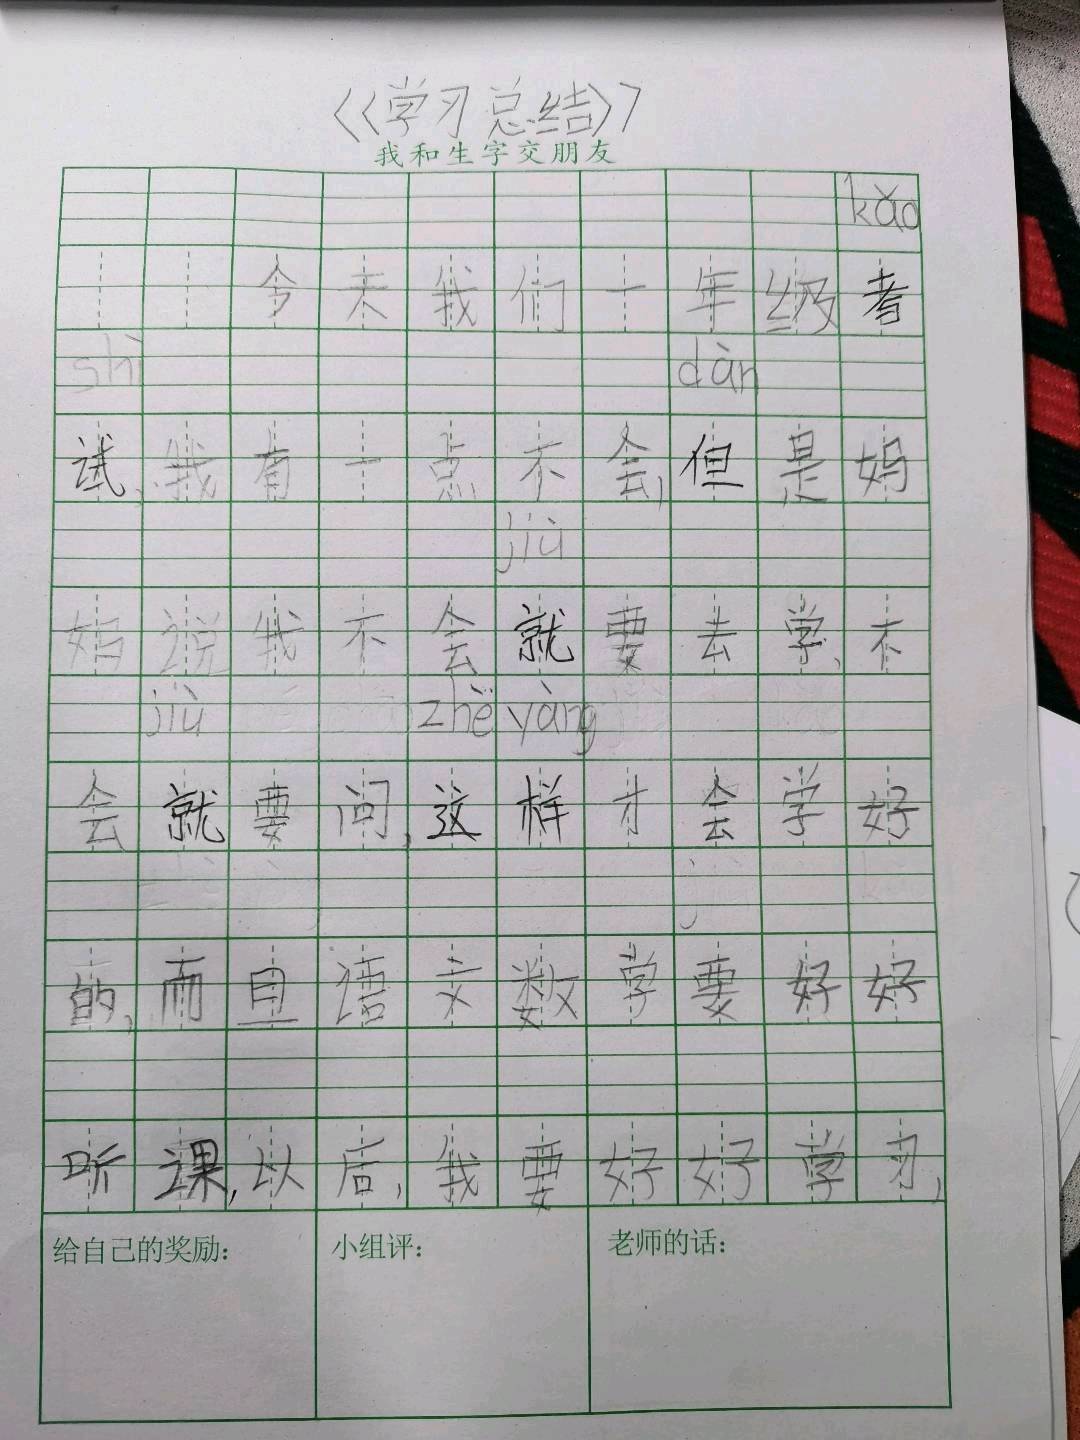 《学习总结》
我和生字交朋友
kǎo
今天我们一年级考
shì dàn
试,我有一点不会,但是妈
jiù
妈说我不会就要去学,不
jiù zhè yàng
会就要问,这样才会学好
的,而且语文数学要好好
听课,以后,我要好好学习,
给自己的奖励: 小组评: 老师的话: